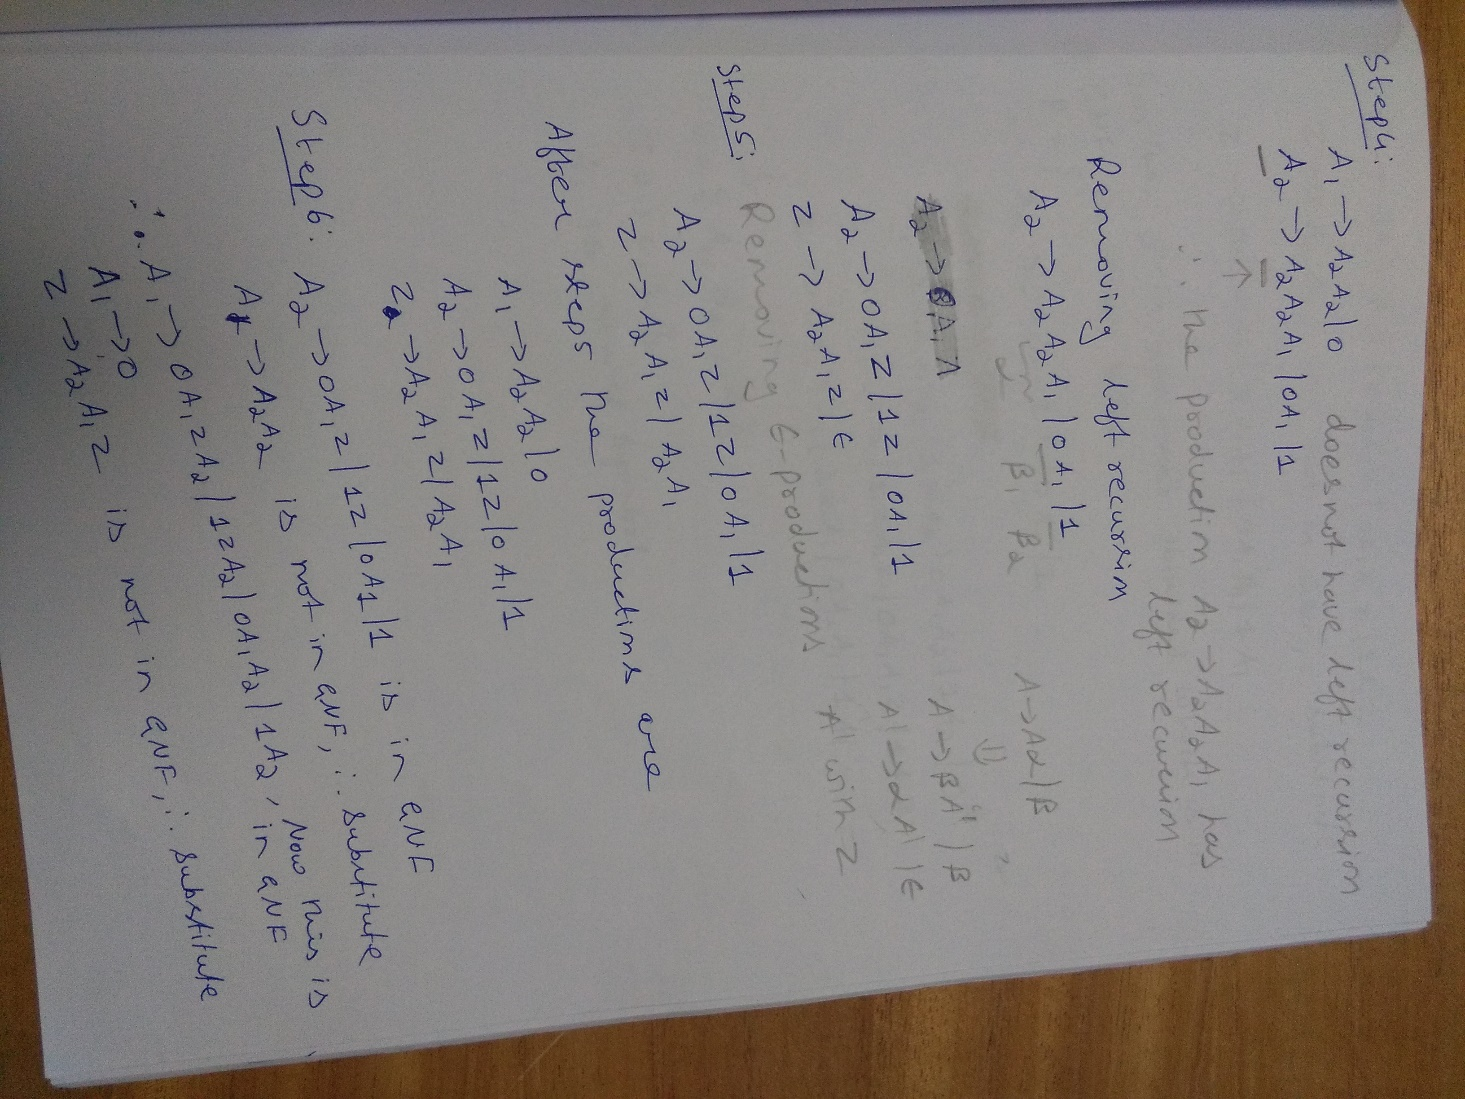 Step4: A₁ → A₂A₂/0 does not have left recursion
A₂ → A₂A₂A₁ /0A₁ /1
↑
∴ the production A₂ → A₂A₂A₁ has
left recursion
Removing left recursion
A₂ → A₂A₂A₁ /0A₁ /1 A → Aα/β
α β₁ β₂ ⇓
A → βA' / β
A₂ → 0A₁Z /1Z /0A₁/1 A' → αA' /ε
Z → A₂A₁Z/ε A' with Z
Removing ε-productions
Step5: A₂ → 0A₁Z/1Z/0A₁/1
Z → A₂A₁Z/ A₂A₁
After steps the productions are
A₁ → A₂A₂/0
A₂ → 0A₁Z/1Z/0A₁/1
Z → A₂A₁Z/A₂A₁
Step6: A₂ → 0A₁Z/1Z/0A1/1 is in GNF
A₁ → A₂A₂ is not in GNF, ∴ substitute
∴ A₁ → 0A₁ZA₂/1ZA₂/0A₁A₂/1A₂, Now this is
in GNF
A₁ → 0
Z → A₂A₁Z is not in GNF, ∴ substitute